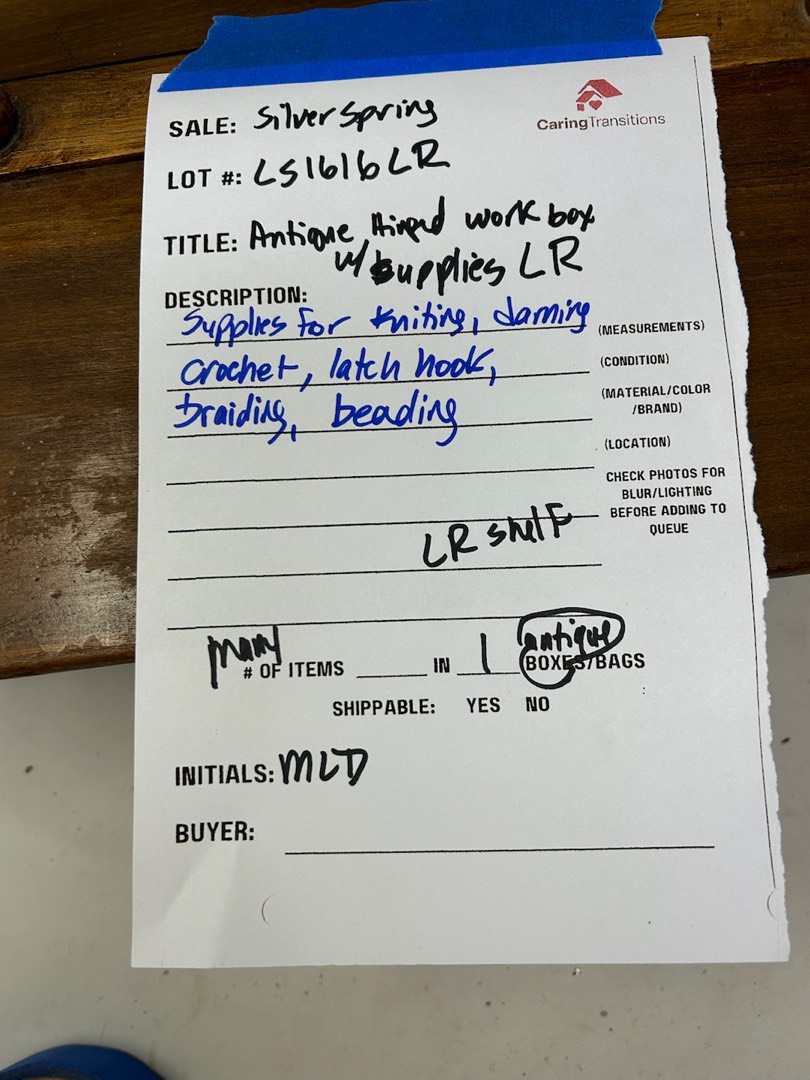 CaringTransitions
SALE: Silver Spring
LOT #: LS1616LR
TITLE: Antique Hinged work box
w/ supplies LR
DESCRIPTION:
Supplies for kniting, darning
(MEASUREMENTS)
crochet, latch hook,
(CONDITION)
braiding, beading
(MATERIAL/COLOR
/BRAND)
(LOCATION)
CHECK PHOTOS FOR
BLUR/LIGHTING
BEFORE ADDING TO
QUEUE
LR shelf
many antique
# OF ITEMS ______ IN 1 BOXES/BAGS
SHIPPABLE: YES NO
INITIALS: MLD
BUYER: